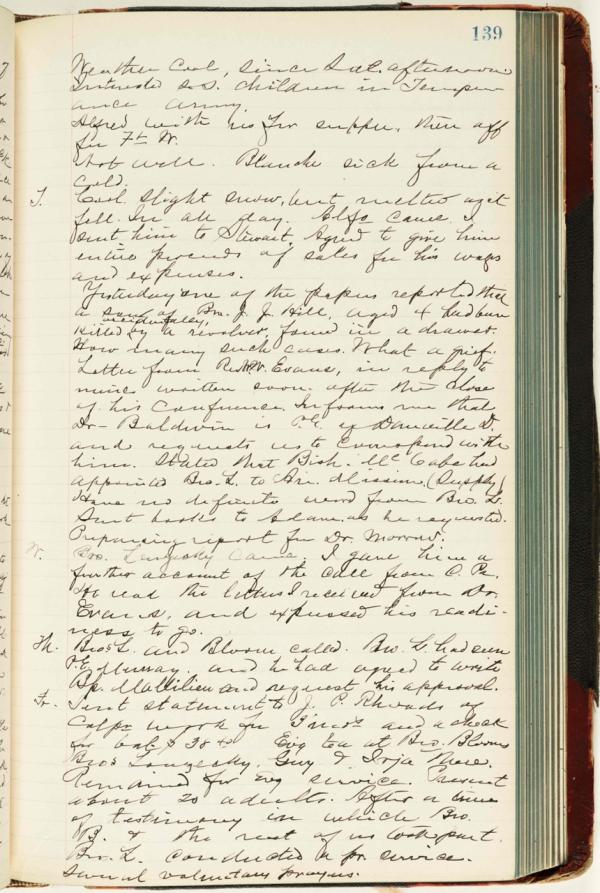 139
Weather Cool, since Sat. afternoon.
Interested S.S. children in Temper
ance Army.
Alfred with us for supper, then off
for Ft. W.
Not well. Blanche sick from a
cold.
T. Cool slight snow, but melted as it
fell. In all day. Alfo came. I
sent him to Stewart. Agreed to give him
entire proceeds of sales for his wages
and expenses.
Yesterday one of the papers reported that
a son of Bro. J. J. Hill, aged 4 had been
accidentally
killed by a revolver, found in a drawer.
How many such cases. What a grief.
Letter from Rev. W. Evans, in reply to
mine written soon after the close
of his Conference. Informs me that
Dr. Baldwin is P.E. of Danville D.
and requests us to correspond with
him. Stated that Bish. McCabe had
appointed Bro. L. to Mission (Supply)
Have no definite word from Bro. L.
Sent books to Adam as he requested.
Preparing report for Dr. Morrow.
W. Bro. came. I gave him a
further account of the call from C. Pa.
He read the letters I received from Dr.
Evans, and expressed his readi-
ness to go.
Th. Bros. L. and Bloom called. Bro. L. had seen
P.E. Murray and he had agreed to write
Bp. Mallilieu and request his approval.
Fr. Sent statement to J. P. Rhoads of
Colpr work for 3 mos and a check
for bal. $ 38 Evg tea at Bro. Blooms
Bros Guy &
Remained for evg service. Present
about 20 adults. After a time
of testimony in which Bro.
B. & the rest of us took part.
Bro. L. conducted a pr. service.
Several voluntary prayers.